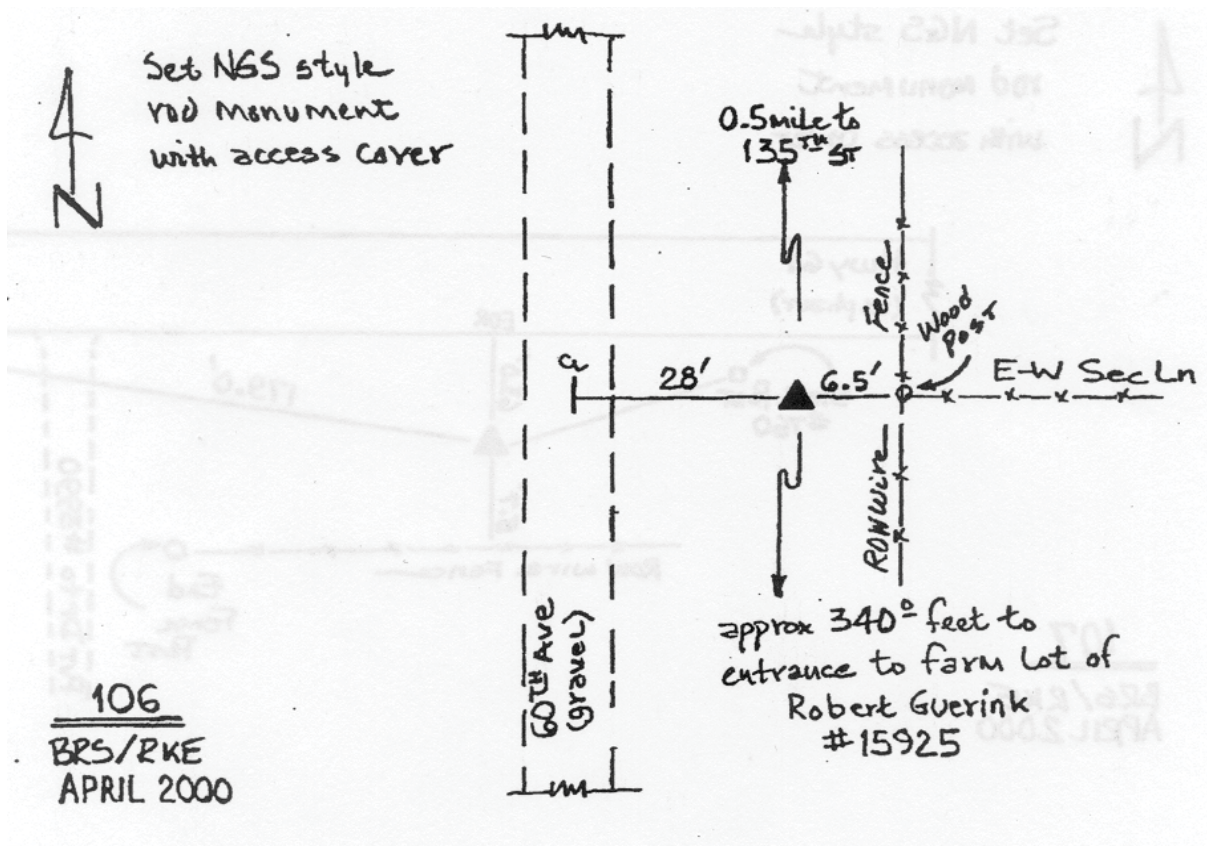 Set NGS style
rod monument
with access cover
N
0.5 mile to
135TH ST
Fence
Wood
Post
℄
28'
6.5'
E-W Sec Ln
ROW Wire
60TH Ave
(gravel)
approx 340± feet to
entrance to farm lot of
Robert Guerink
#15925
106
BRS/RKE
APRIL 2000